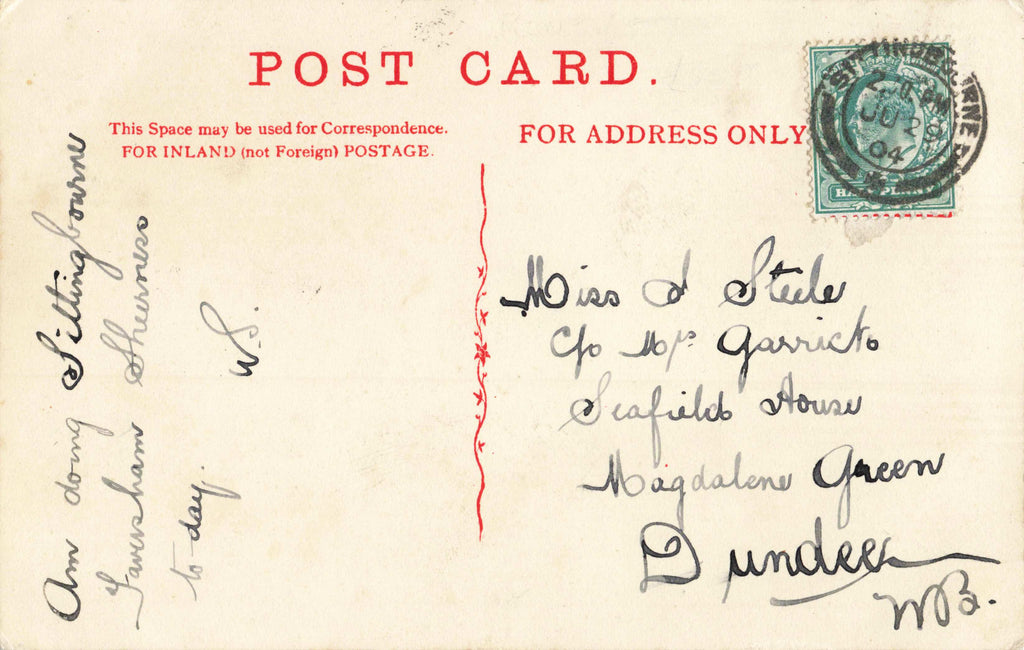 POST CARD.
This Space may be used for Correspondence.
FOR INLAND (not Foreign) POSTAGE.
FOR ADDRESS ONLY
SITTINGBOURNE
JU 29
04
HALFPENNY
Am doing Sittingbourne
Faversham Sheerness
to day.
W.S.
Miss J Steele
c/o Mrs Garrick
Seafield House
Magdalene Green
Dundee
NB.